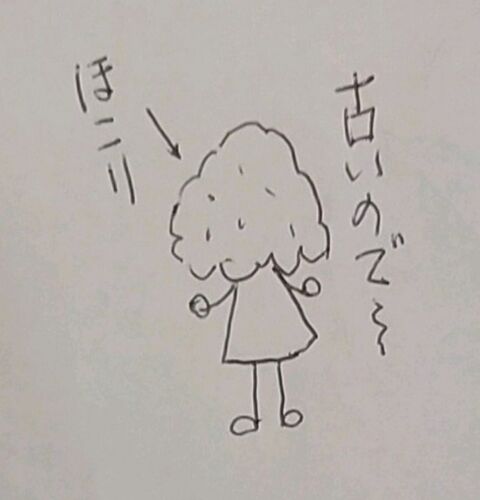 古いので〜
ほこり